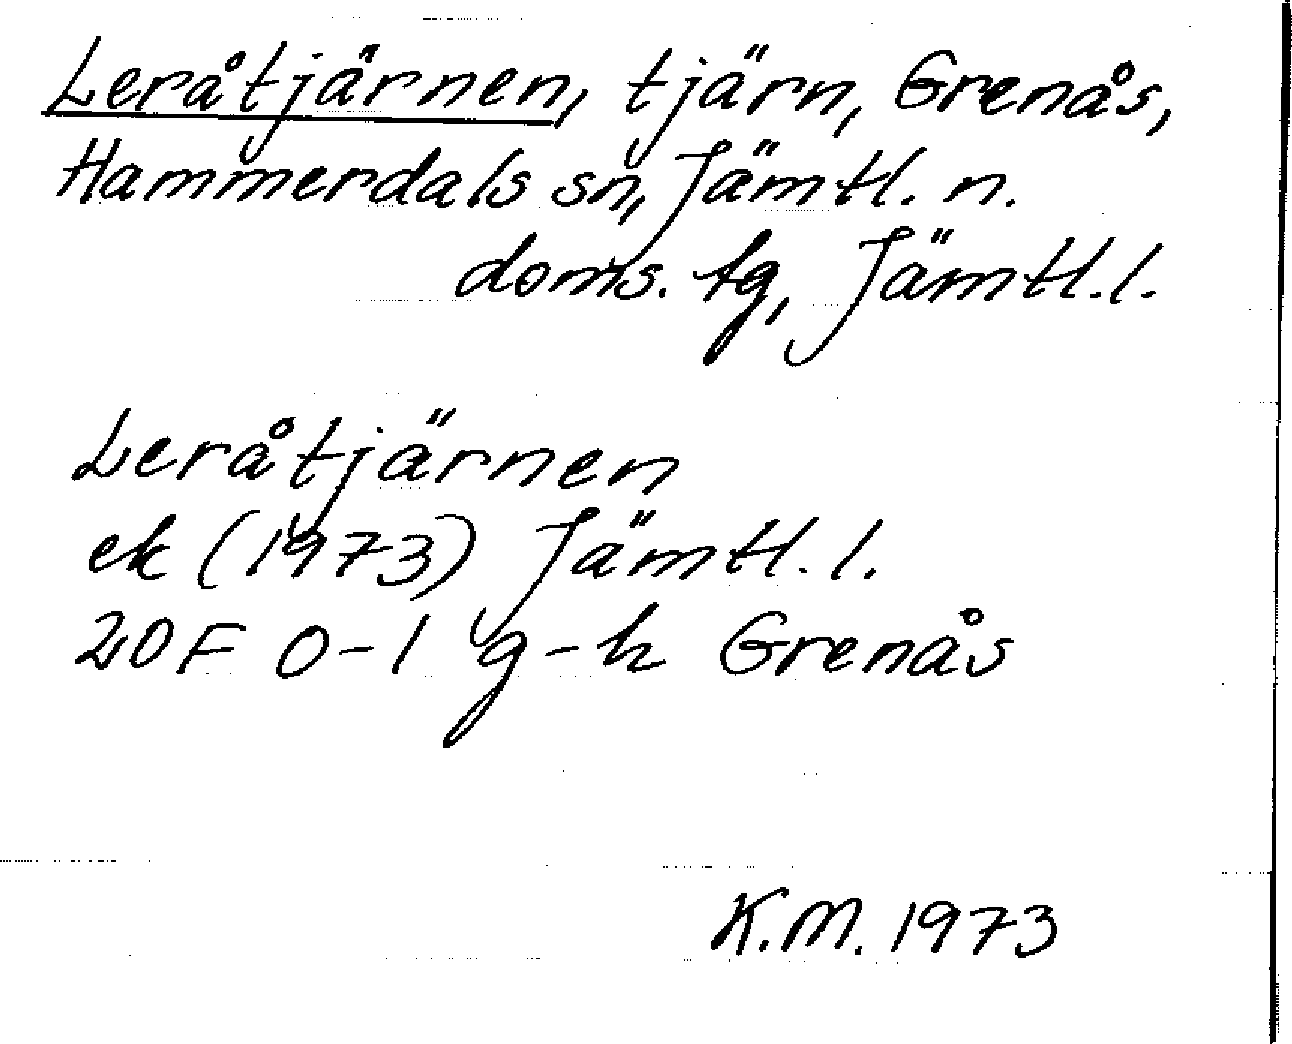 Leråtjärnen, tjärn, Grenås,
Hammerdals sn, Jämtl. n.
doms. tg, Jämtl. l.
Leråtjärnen
ek (1973) Jämtl. l.
20F 0-1 g-h Grenås
K.M. 1973